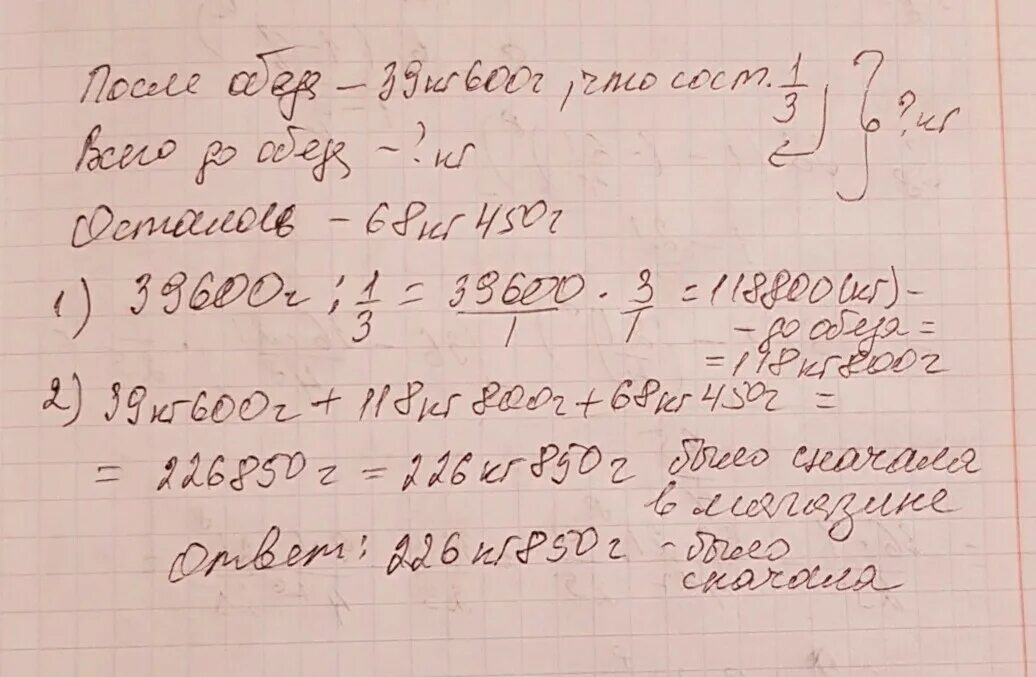 После обеда – 39кг600г, что сост. 1/3
? кг
Всего до обеда – ? кг
Осталось – 68кг450г
1) 39600г : 1/3 = 39600/1 · 3/1 = 118800(кг) –
– до обеда =
= 118кг800г
2) 39кг600г + 118кг800г + 68кг450г =
= 226850г = 226кг850г было сначала
в магазине
Ответ: 226кг850г – было
сначала